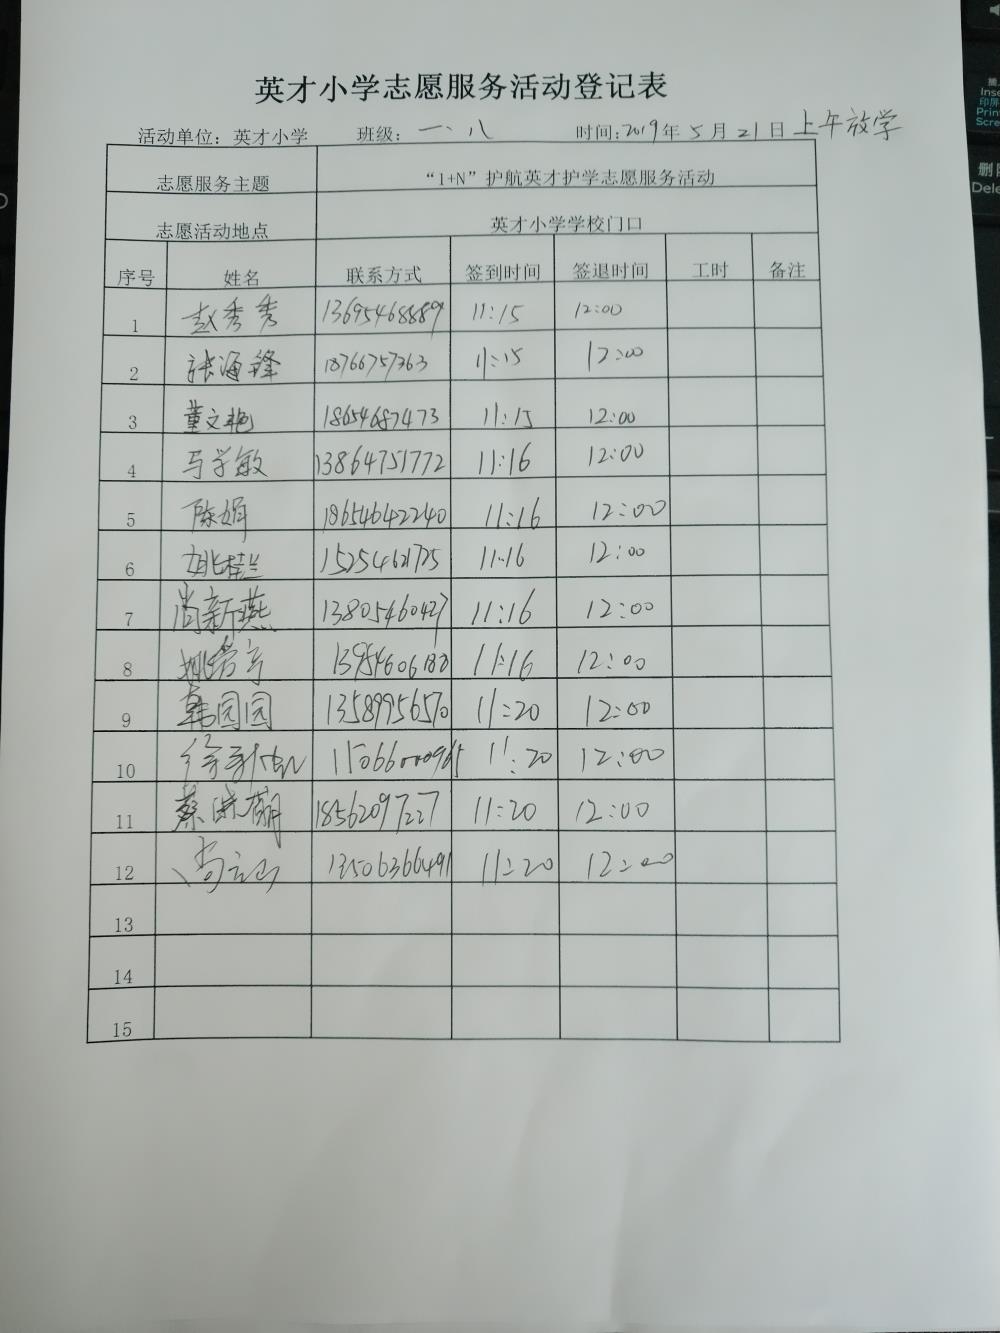 英才小学志愿服务活动登记表
活动单位：英才小学 班级：一、八 时间：2019年5月21日上午放学
志愿服务主题 “1+N”护航英才护学志愿服务活动
志愿活动地点 英才小学学校门口
序号 姓名 联系方式 签到时间 签退时间 工时 备注
1 赵秀秀 13695468889 11:15 12:00
2 张海锋 18766757363 11:15 12:00
3 董文艳 18654687473 11:15 12:00
4 马学敏 13864751772 11:16 12:00
5 陈娟 18654642240 11:16 12:00
6 姚桂兰 15254621725 11:16 12:00
7 尚新燕 13805460427 11:16 12:00
8 13954606188 11:16 12:00
9 韩园园 13589956570 11:20 12:00
10 15066000965 11:20 12:00
11 蔡 18562097227 11:20 12:00
12 13506366491 11:20 12:00
13
14
15